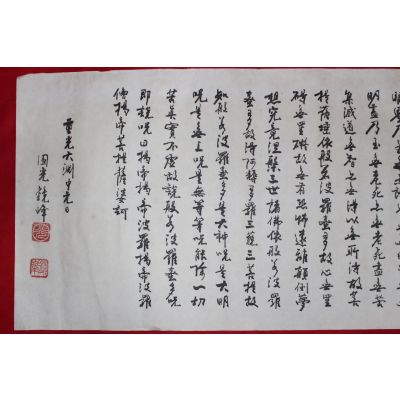 明盡乃至無老死亦無老死盡無苦
集滅道無智亦無得以無所得故菩
提薩埵依般若波羅蜜多故心無罣
礙無罣礙故無有恐怖遠離顛倒夢
想究竟涅槃三世諸佛依般若波羅
蜜多故得阿耨多羅三藐三菩提故
知般若波羅蜜多是大神呪是大明
呪是無上呪是無等等呪能除一切
苦真實不虛故說般若波羅蜜多呪
即說呪曰揭帝揭帝波羅揭帝波羅
僧揭帝菩提薩婆訶
重光大淵中元日
圓光鏡峰